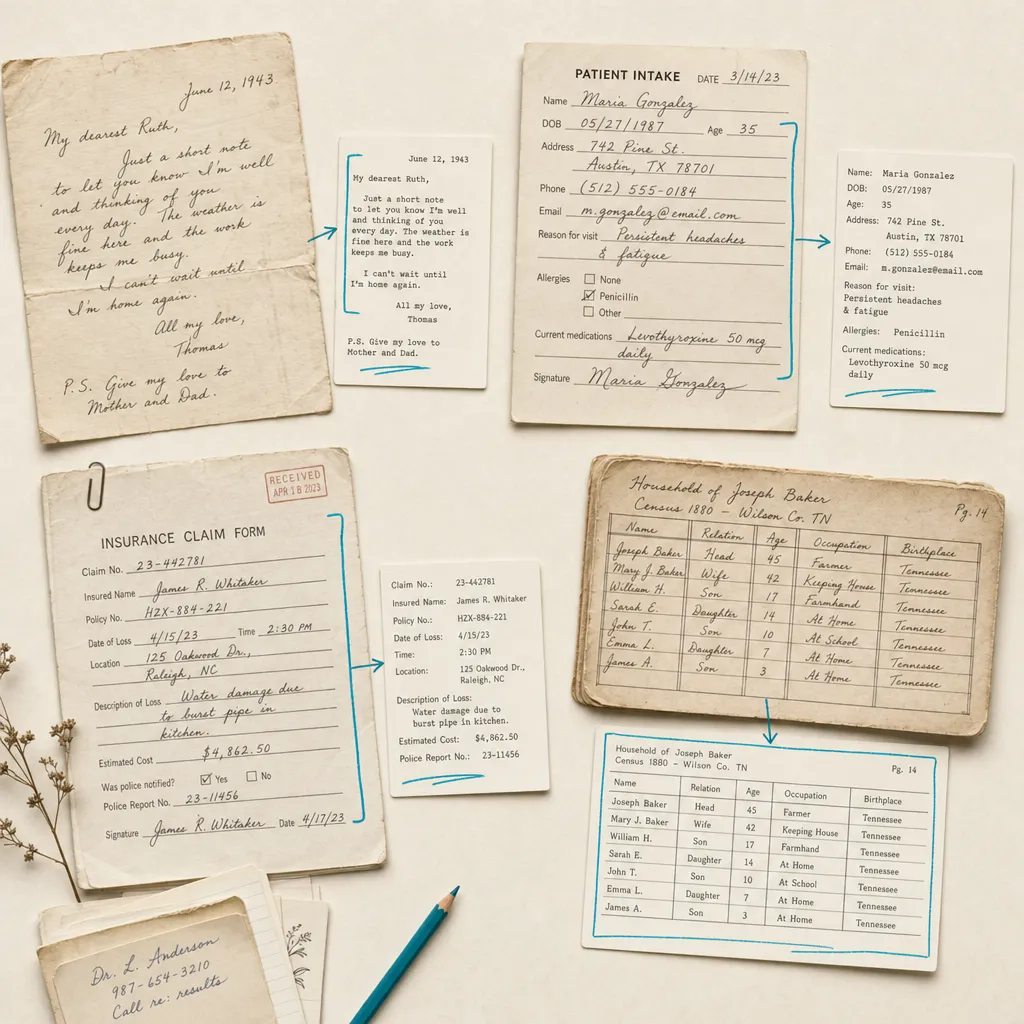 June 12, 1943
My dearest Ruth,
Just a short note
to let you know I'm well
and thinking of you
every day. The weather is
fine here and the work
keeps me busy.
I can't wait until
I'm home again.
All my love,
Thomas
P.S. Give my love to
Mother and Dad.
June 12, 1943
My dearest Ruth,
Just a short note
to let you know I'm well
and thinking of you
every day. The weather is
fine here and the work
keeps me busy.
I can't wait until
I'm home again.
All my love,
Thomas
P.S. Give my love to
Mother and Dad.
PATIENT INTAKE DATE 3/14/23
Name Maria Gonzalez
DOB 05/27/1987 Age 35
Address 742 Pine St.
Austin, TX 78701
Phone (512) 555-0184
Email m.gonzalez@email.com
Reason for visit Persistent headaches
& fatigue
Allergies None
Penicillin
Other
Current medications Levothyroxine 50 mcg
daily
Signature Maria Gonzalez
Name: Maria Gonzalez
DOB: 05/27/1987
Age: 35
Address: 742 Pine St.
Austin, TX 78701
Phone: (512) 555-0184
Email: m.gonzalez@email.com
Reason for visit:
Persistent headaches
& fatigue
Allergies: Penicillin
Current medications:
Levothyroxine 50 mcg
daily
RECEIVED
APR 18 2023
INSURANCE CLAIM FORM
Claim No. 23-442781
Insured Name James R. Whitaker
Policy No. H2X-884-221
Date of Loss 4/15/23 Time 2:30 PM
Location 125 Oakwood Dr.,
Raleigh, NC
Description of Loss Water damage due
to burst pipe in
kitchen.
Estimated Cost $4,862.50
Was police notified? Yes No
Police Report No. 23-11456
Signature James R. Whitaker Date 4/17/23
Claim No.: 23-442781
Insured Name: James R. Whitaker
Policy No.: H2X-884-221
Date of Loss: 4/15/23
Time: 2:30 PM
Location: 125 Oakwood Dr.,
Raleigh, NC
Description of Loss:
Water damage due to
burst pipe in kitchen.
Estimated Cost: $4,862.50
Police Report No.: 23-11456
Household of Joseph Baker
Census 1880 – Wilson Co. TN Pg. 14
Name Relation Age Occupation Birthplace
Joseph Baker Head 45 Farmer Tennessee
Mary J. Baker Wife 42 Keeping House Tennessee
William H. Son 17 Farmhand Tennessee
Sarah E. Daughter 14 At Home Tennessee
John T. Son 10 At School Tennessee
Emma L. Daughter 7 At Home Tennessee
James A. Son 3 At Home Tennessee
Household of Joseph Baker
Census 1880 – Wilson Co. TN Pg. 14
Name Relation Age Occupation Birthplace
Joseph Baker Head 45 Farmer Tennessee
Mary J. Baker Wife 42 Keeping House Tennessee
William H. Son 17 Farmhand Tennessee
Sarah E. Daughter 14 At Home Tennessee
John T. Son 10 At School Tennessee
Emma L. Daughter 7 At Home Tennessee
James A. Son 3 At Home Tennessee
Dr. L. Anderson
987-654-3210
Call re: results